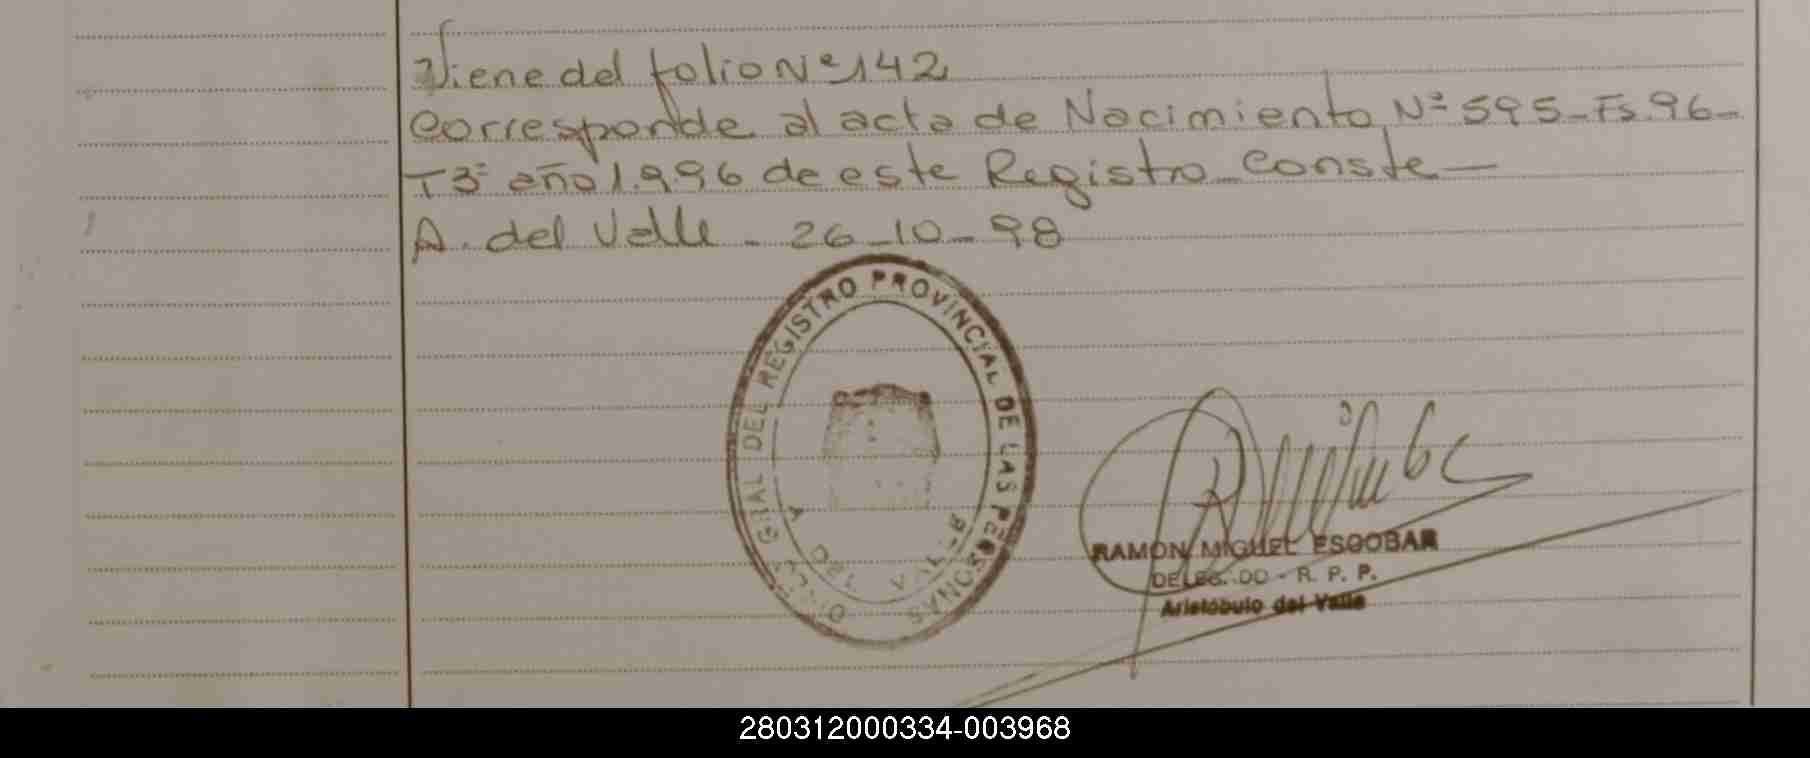 Viene del folio Nº 142
Corresponde al acta de Nacimiento Nº 595-Fs.96-
T3º año 1.996 de este Registro. Conste-
A. del Valle - 26-10-98
DEL REGISTRO PROVINCIAL DE LAS PERSONAS
DEL VALLE
RAMON MIGUEL ESCOBAR
R. P. P.
Aristóbulo del Valle
280312000334-003968